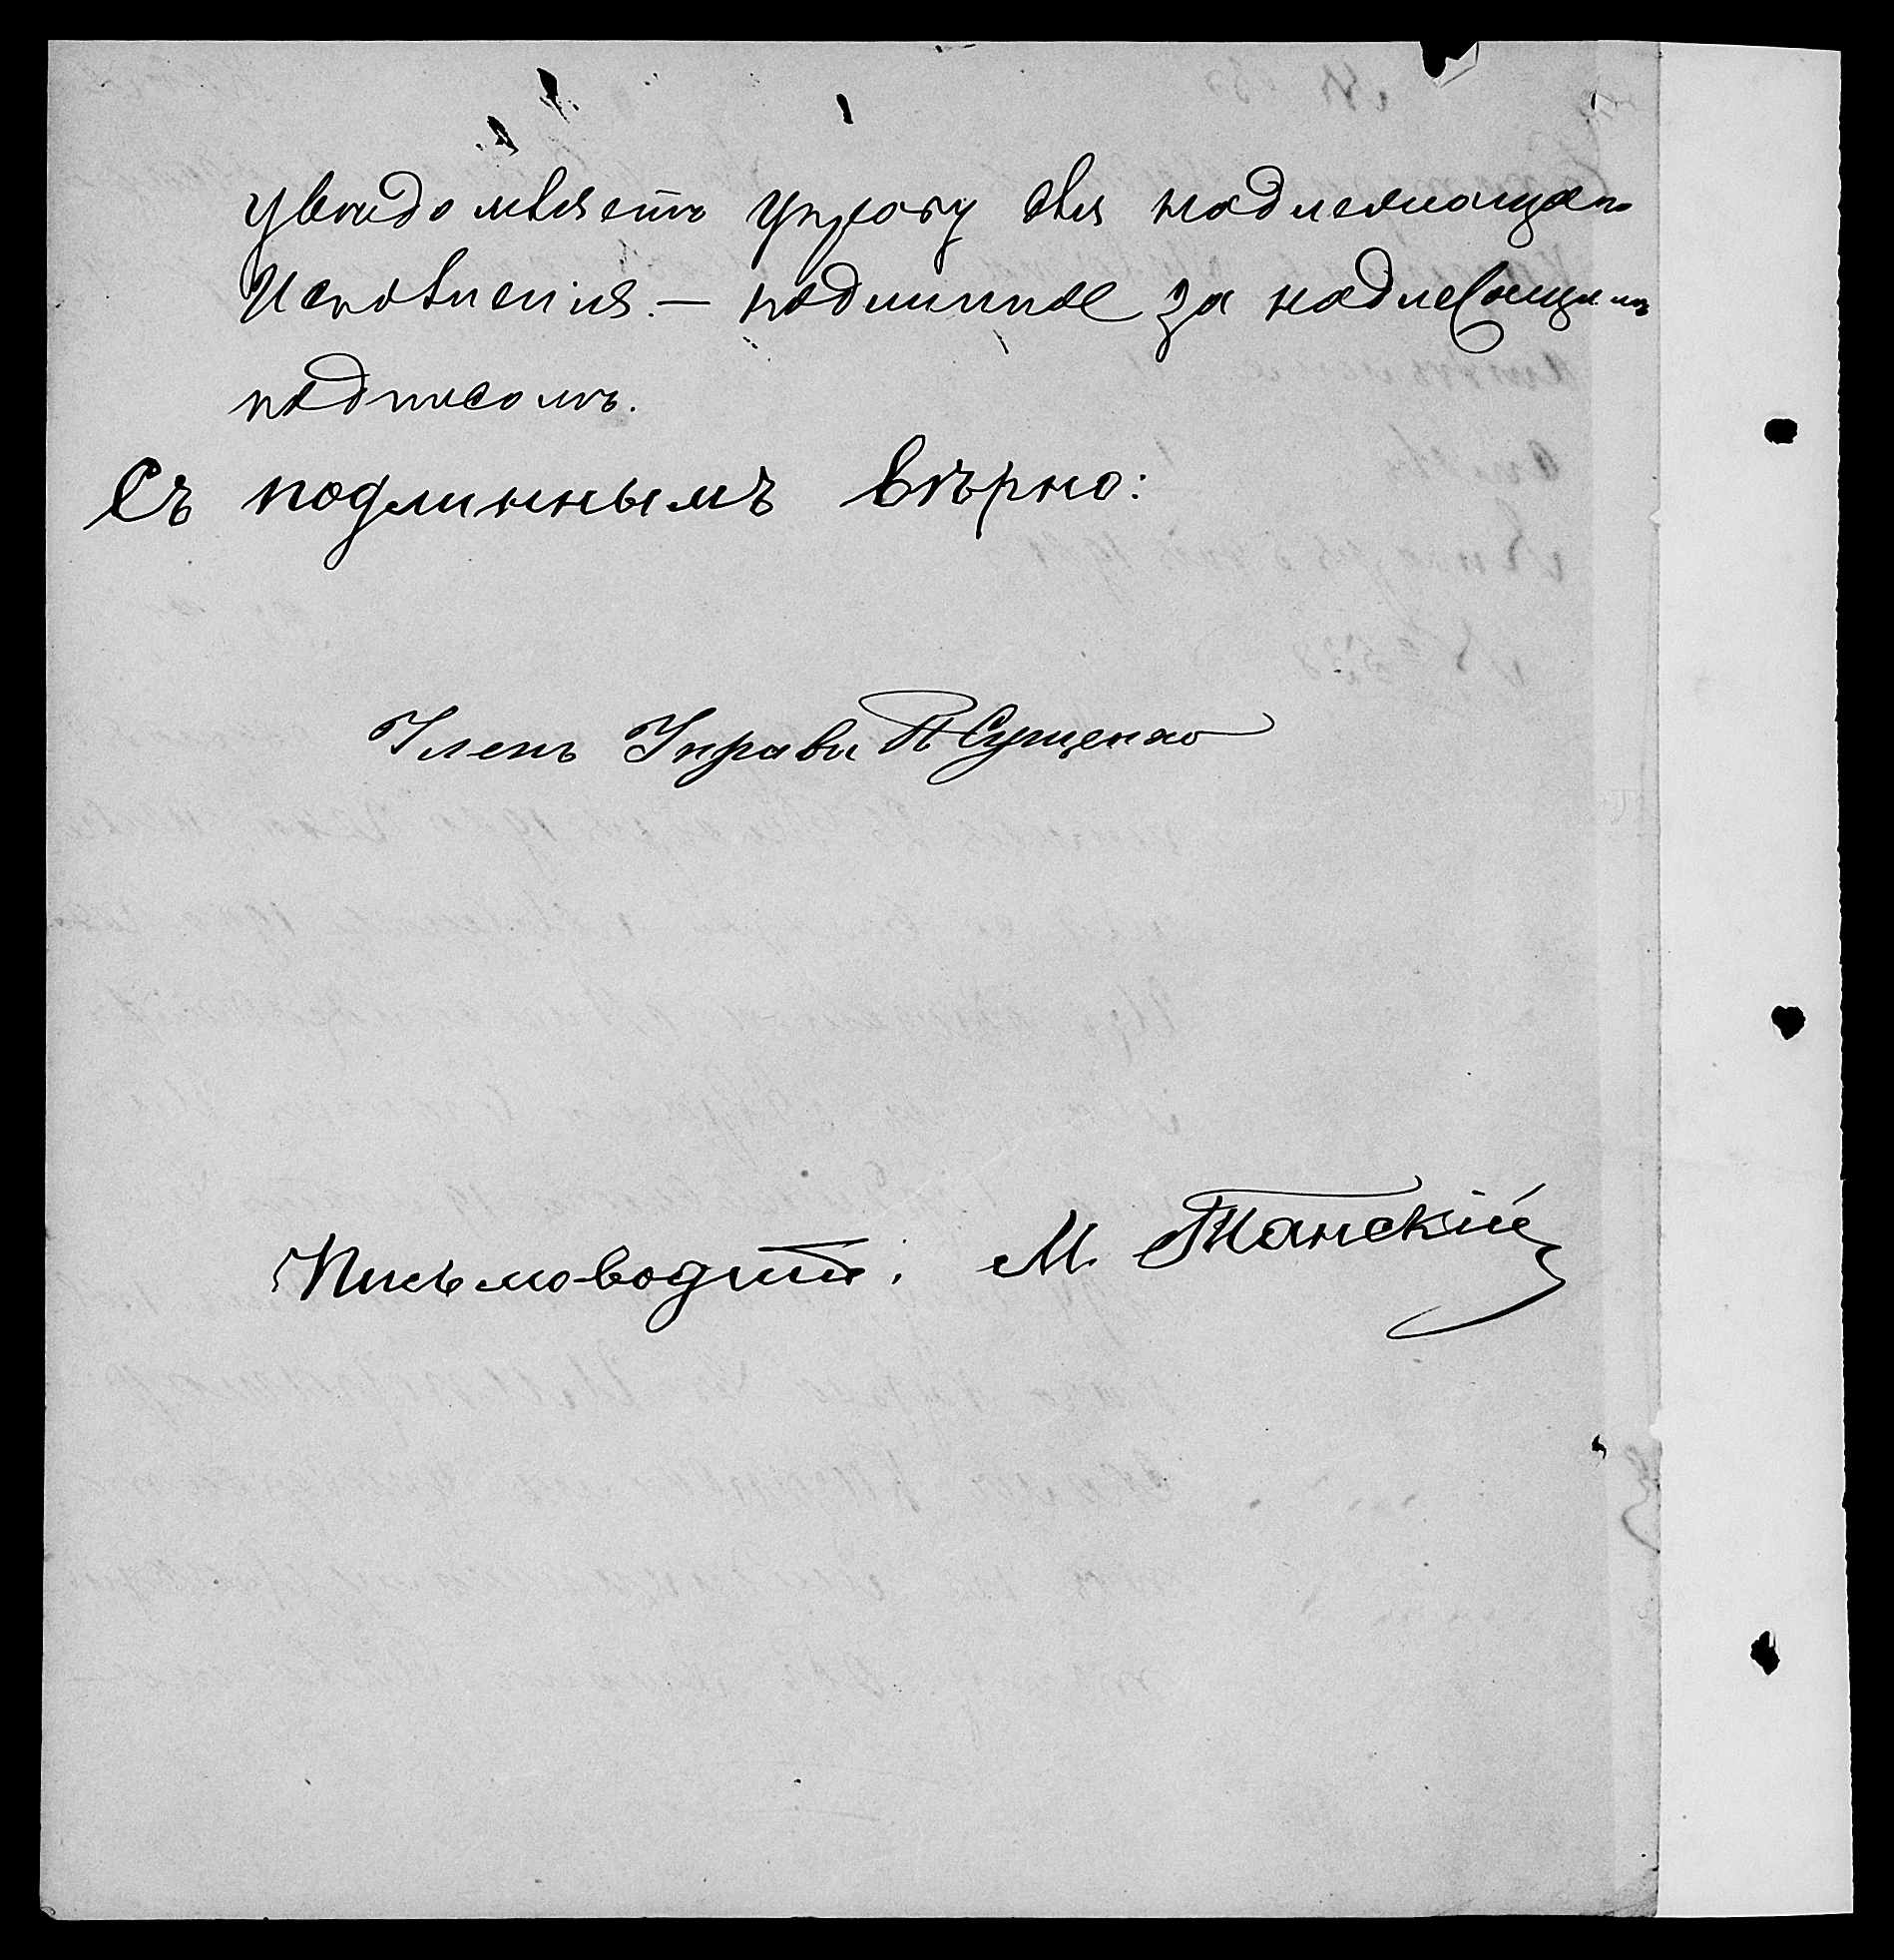 увѣдомляетъ Управу для надлежащаго
Исполненія. — подлинное за надлежащимъ
подписомъ.
Съ подлиннымъ вѣрно:
Членъ Управы П Сущенко
Письмоводит: М. Танскій